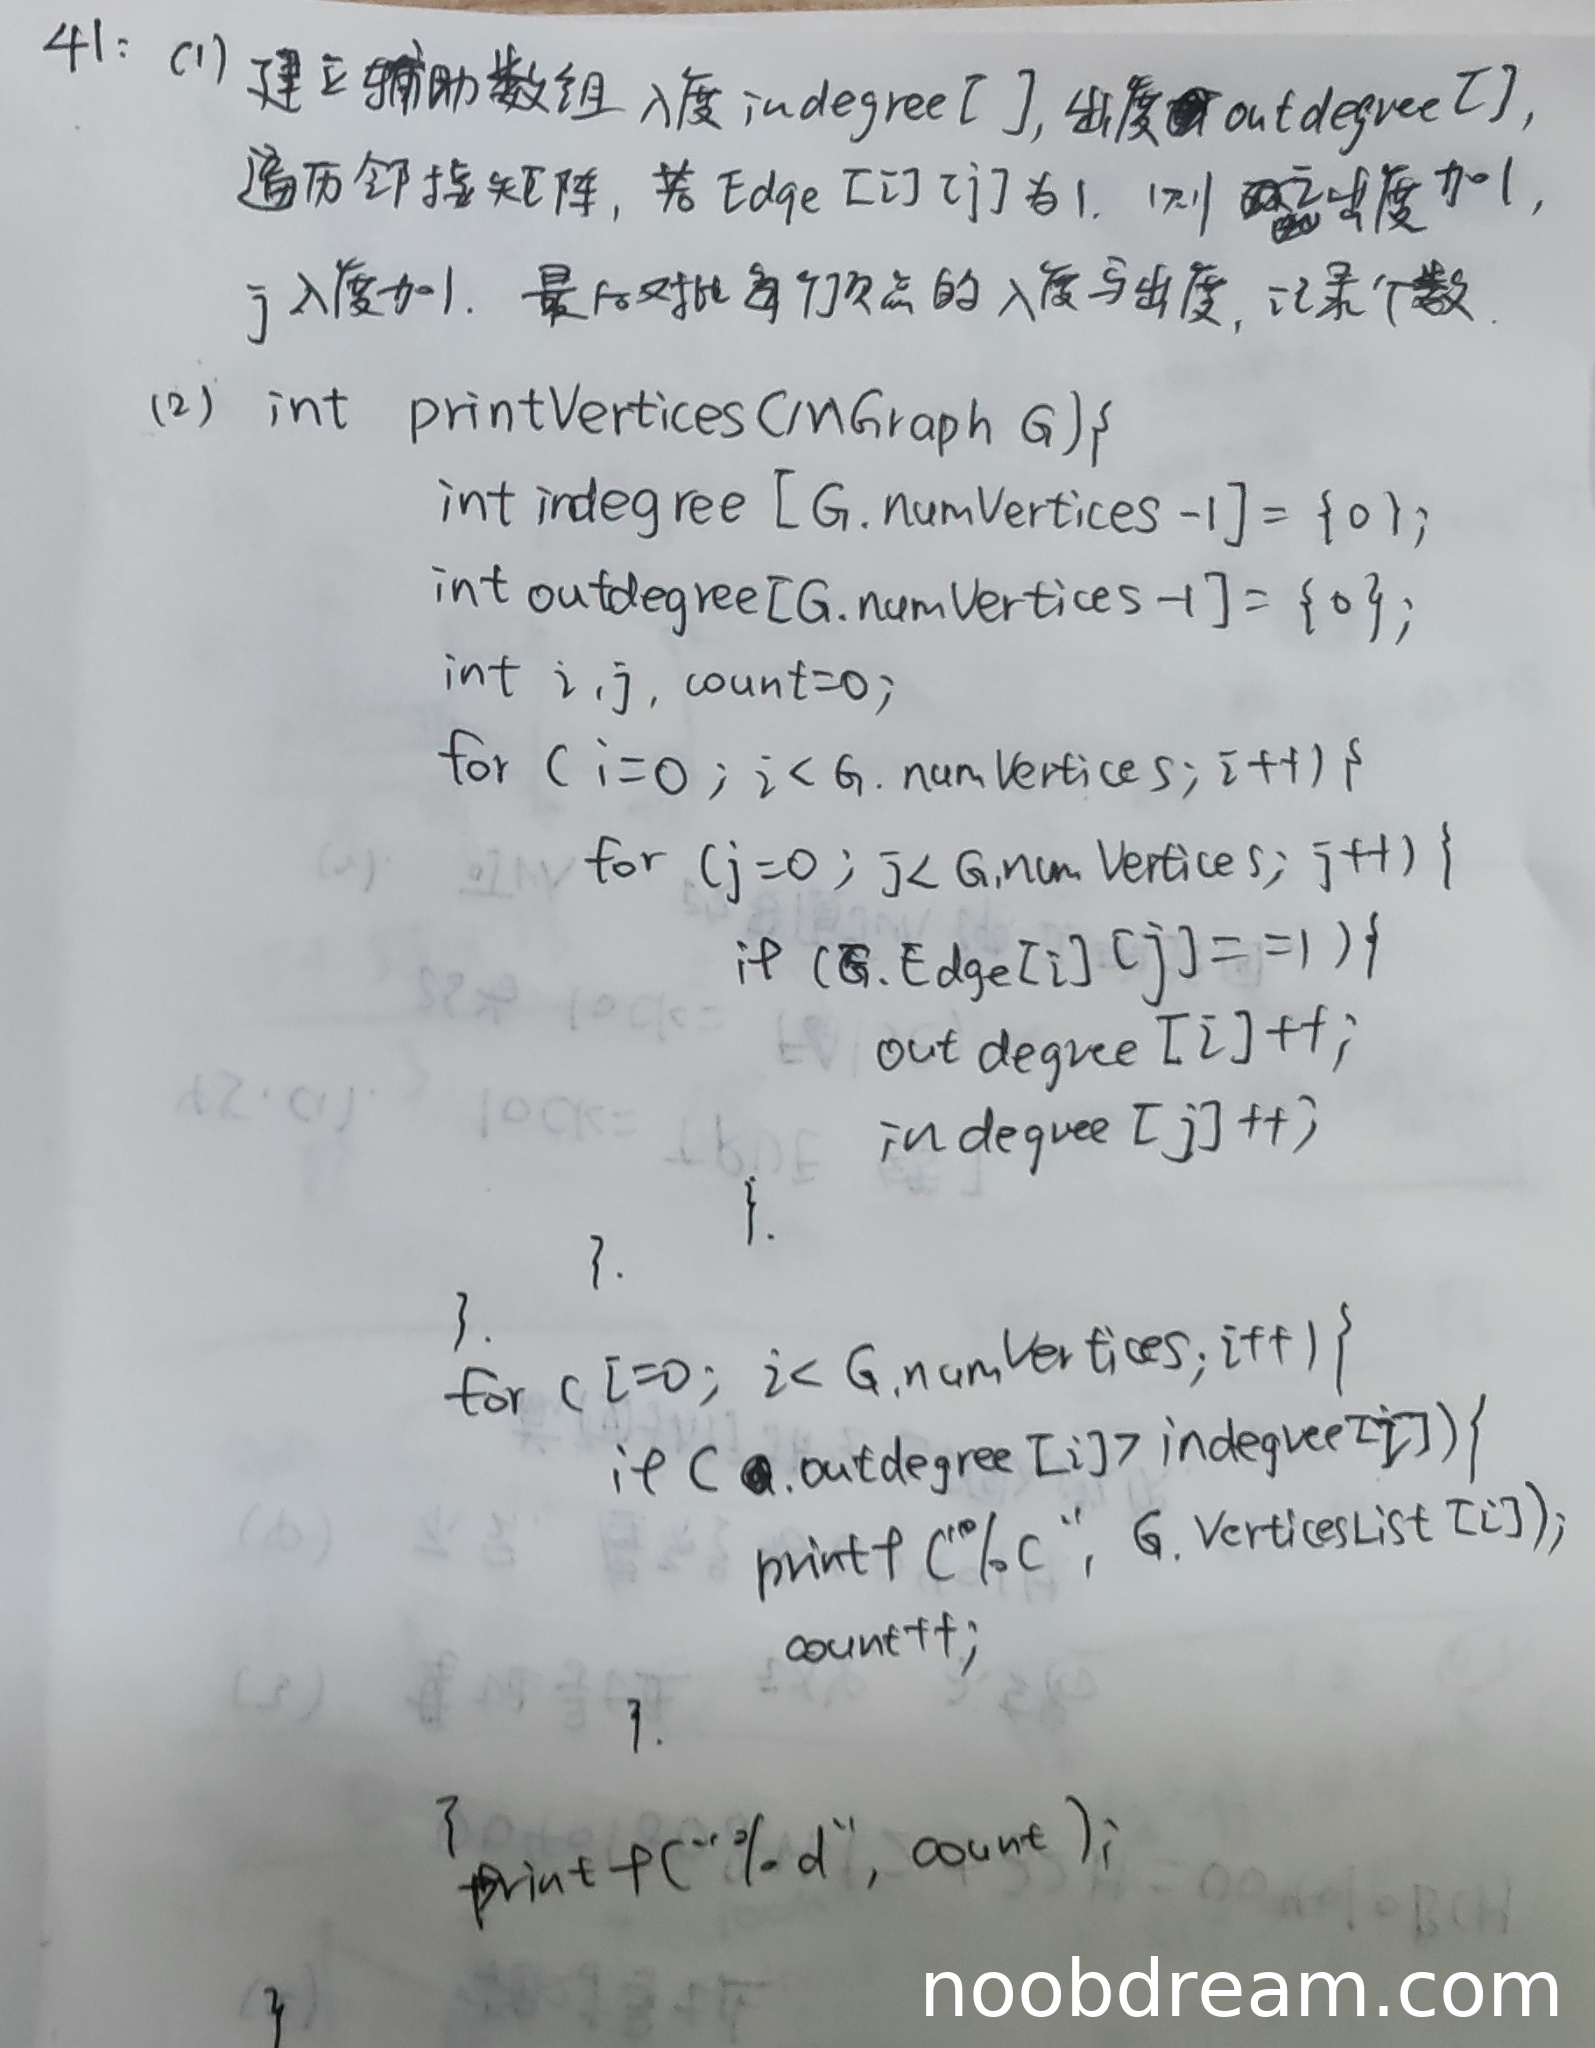 41: (1) 建立辅助数组 入度 indegree[ ], 出度 outdegree[],
遍历邻接矩阵, 若 Edge[i][j]为1. 则 i 出度加1,
j 入度加1. 最后对比每个顶点的入度与出度, 记录个数.
(2) int printVertices(MGraph G){
int indegree [G.numVertices-1]={0};
int outdegree[G.numVertices-1]={0};
int i,j, count=0;
for (i=0; i<G.numVertices; i++){
for (j=0; j<G.numVertices; j++){
if (G.Edge[i][j]==1){
outdegree[i]++;
indegree[j]++;
}.
}.
}.
for (i=0; i<G.numVertices; i++){
if (.outdegree[i]>indegree[i]){
printf("%c", G.VerticesList[i]);
count++;
}.
}
printf("%d", count);
}
noobdream.com